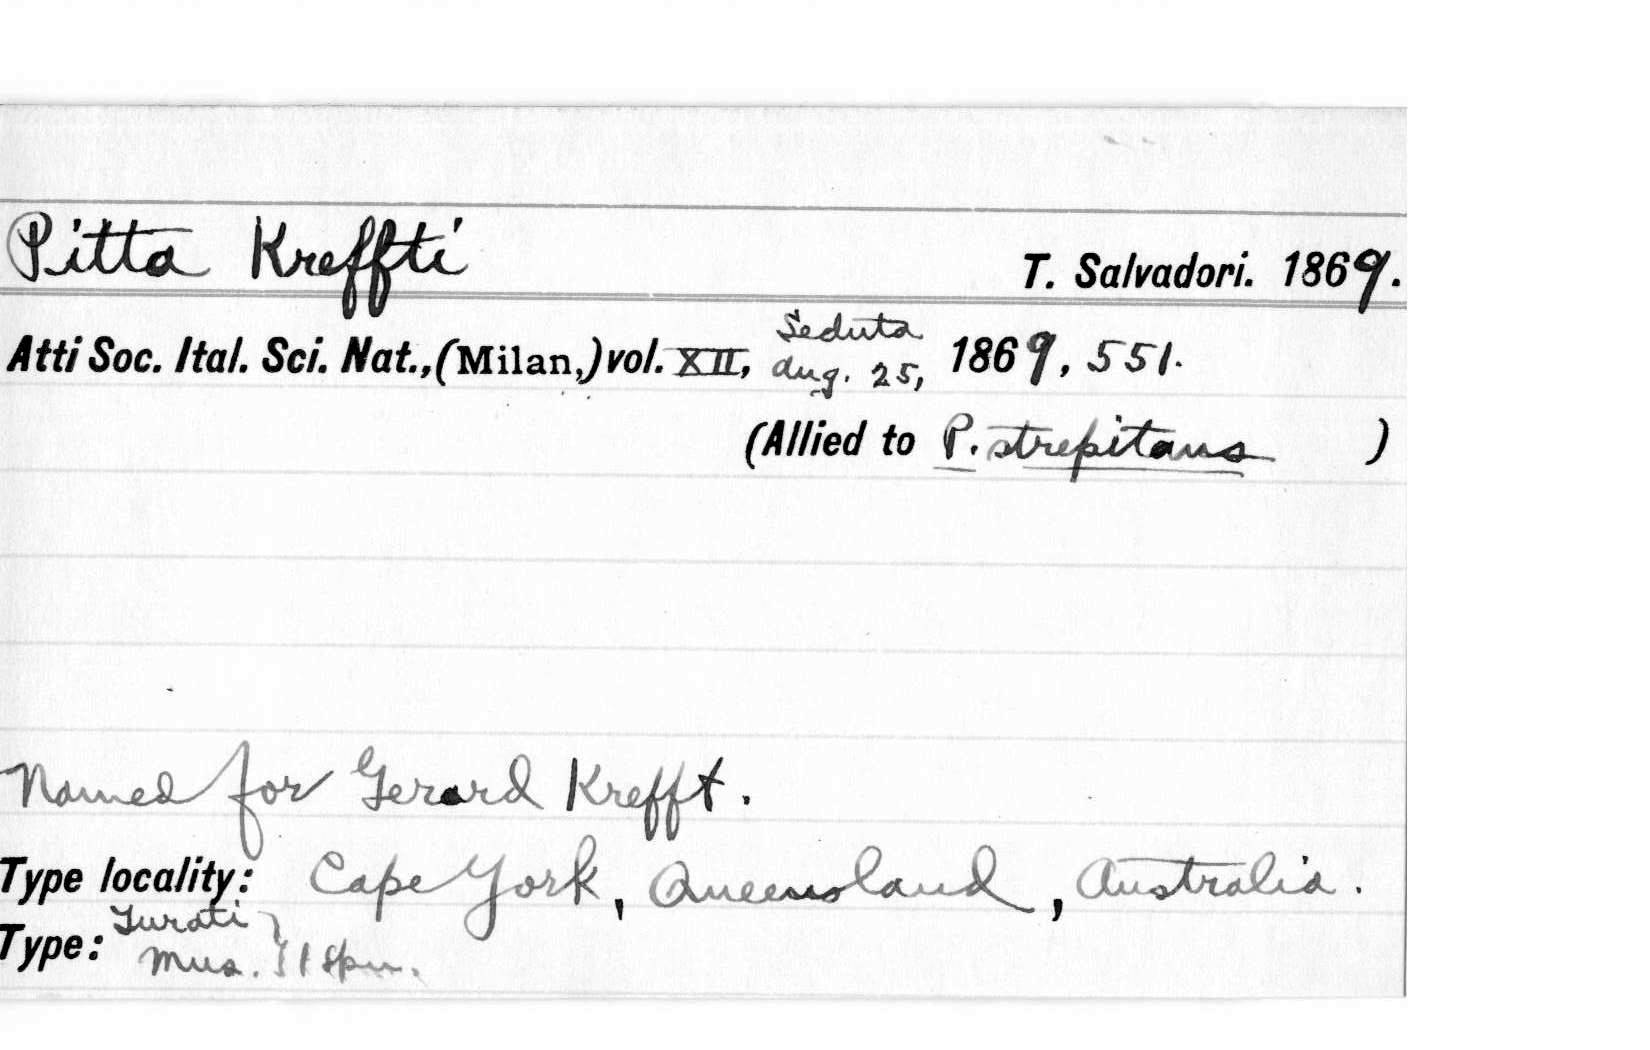 Pitta Kreffti
T. Salvadori. 1869.
Atti Soc. Ital. Sci. Nat., (Milan,) vol. XII, Seduta Aug. 25, 1869, 551.
(Allied to P. strepitans )
Named for Gerard Krefft.
Type locality: Cape York, Queensland, Australia.
Type: Turati Mus. } 1 Spn.